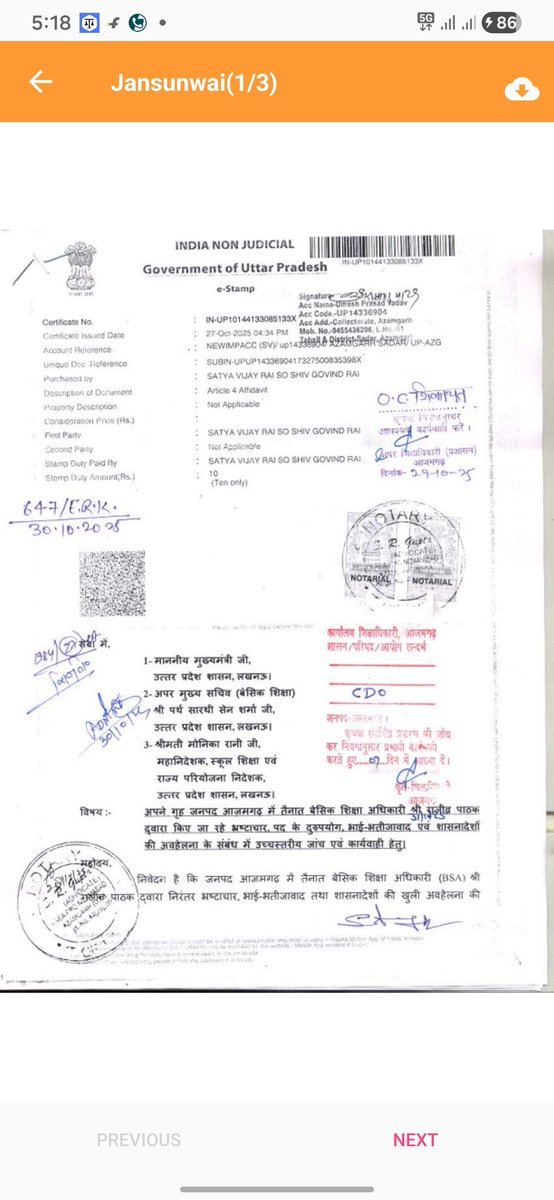 5:18
5G
86
Jansunwai(1/3)
INDIA NON JUDICIAL
Government of Uttar Pradesh
e-Stamp
IN-UP10144133085133X
Signature
Acc Name-Dinesh Prasad Yadav
Acc Code-UP14336904
Acc Add.-Collectorate, Azamgarh
Mob. No.-9455436206, L.No.-51
Tehsil & District-Sadar, Azamgarh
Certificate No. : IN-UP10144133085133X
Certificate Issued Date : 27-Oct-2025 04:34 PM
Account Reference : NEWIMPACC (SV)/ up14336904/ AZAMGARH SADAR/ UP-AZG
Unique Doc. Reference : SUBIN-UPUP1433690417327500835398X
Purchased by : SATYA VIJAY RAI SO SHIV GOVIND RAI
Description of Document : Article 4 Affidavit
Property Description : Not Applicable
Consideration Price (Rs.) :
First Party : SATYA VIJAY RAI SO SHIV GOVIND RAI
Second Party : Not Applicable
Stamp Duty Paid By : SATYA VIJAY RAI SO SHIV GOVIND RAI
Stamp Duty Amount(Rs.) : 10
(Ten only)
O.C. शिकायत
कृपया नियमानुसार
आवश्यक कार्यवाही करें।
अपर जिलाधिकारी (प्रशासन)
आजमगढ़
दिनांक- 29-10-25
647/E.R.K.
30.10.2025
NOTARY
S. R. Gupta
(ADVOCATE)
NOTARIAL NOTARIAL
सेवा में,
1- माननीय मुख्यमंत्री जी,
उत्तर प्रदेश शासन, लखनऊ।
2- अपर मुख्य सचिव (बेसिक शिक्षा)
श्री पर्थ सारथी सेन शर्मा जी,
उत्तर प्रदेश शासन, लखनऊ।
3- श्रीमती मोनिका रानी जी,
महानिदेशक, स्कूल शिक्षा एवं
राज्य परियोजना निदेशक,
उत्तर प्रदेश शासन, लखनऊ।
30/10/25
कार्यालय जिलाधिकारी, आजमगढ़
शासन/परिषद/आयोग सन्दर्भ
CDO
जनपद-आजमगढ़।
कृपया संदर्भित प्रकरण की जांच
कर नियमानुसार प्रभावी कार्यवाही
करते हुए 07 दिन में
आजमगढ़
विषय :- अपने गृह जनपद आज़मगढ़ में तैनात बेसिक शिक्षा अधिकारी श्री राजीव पाठक
द्वारा किए जा रहे भ्रष्टाचार, पद के दुरुपयोग, भाई-भतीजावाद एवं शासनादेशों
की अवहेलना के संबंध में उच्चस्तरीय जांच एवं कार्यवाही हेतु।
महोदय,
निवेदन है कि जनपद आजमगढ़ में तैनात बेसिक शिक्षा अधिकारी (BSA) श्री
राजीव पाठक द्वारा निरंतर भ्रष्टाचार, भाई-भतीजावाद तथा शासनादेशों की खुली अवहेलना की
PREVIOUS
NEXT